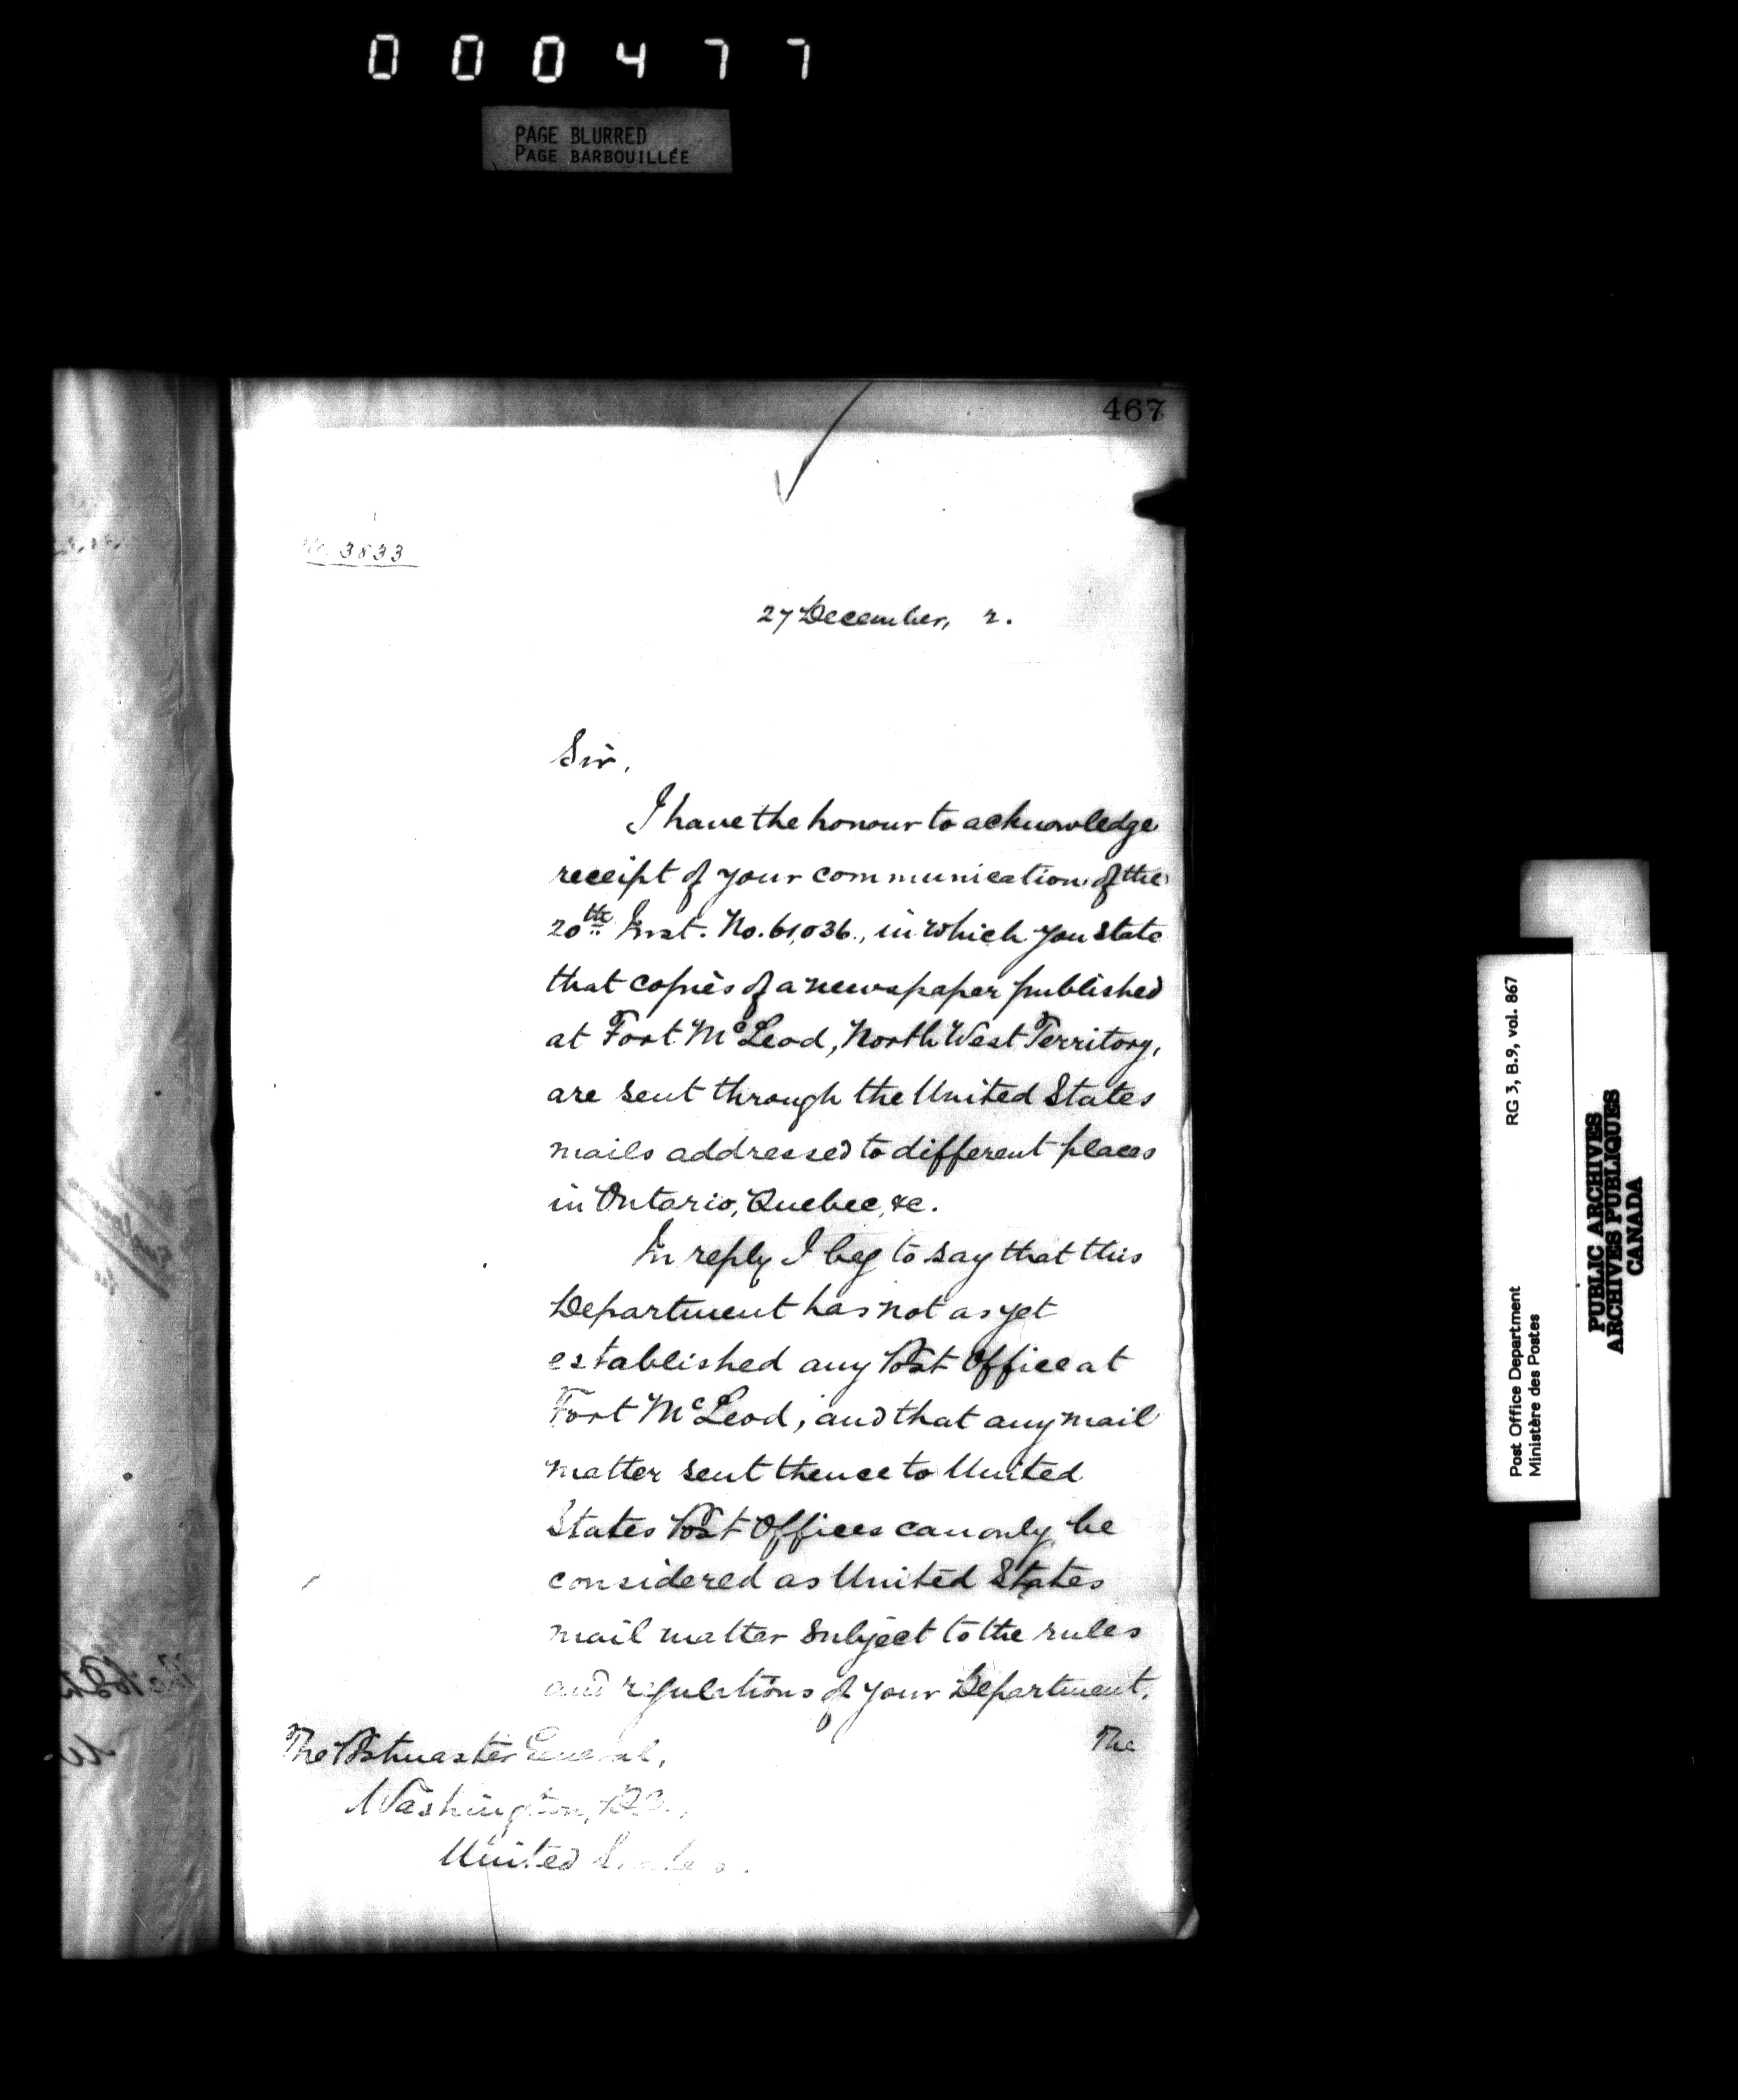 000477
PAGE BLURRED
PAGE BARBOUILLÉE
467
No. 3833
27 December, 2.
Sir,
I have the honour to acknowledge
receipt of your communication of the
20th Inst. No. 61,036., in which you state
that copies of a newspaper published
at Fort McLeod, North West Territory,
are sent through the United States
mails addressed to different places
in Ontario, Quebec, &c.
In reply I beg to say that this
Department has not as yet
established any Post Office at
Fort McLeod, and that any mail
matter sent thence to United
States Post Offices can only be
considered as United States
mail matter subject to the rules
and regulations of your Department.
The
The Postmaster General,
Washington, D.C.,
United States.
Post Office Department RG 3, B.9, vol. 867
Ministère des Postes
PUBLIC ARCHIVES
ARCHIVES PUBLIQUES
CANADA